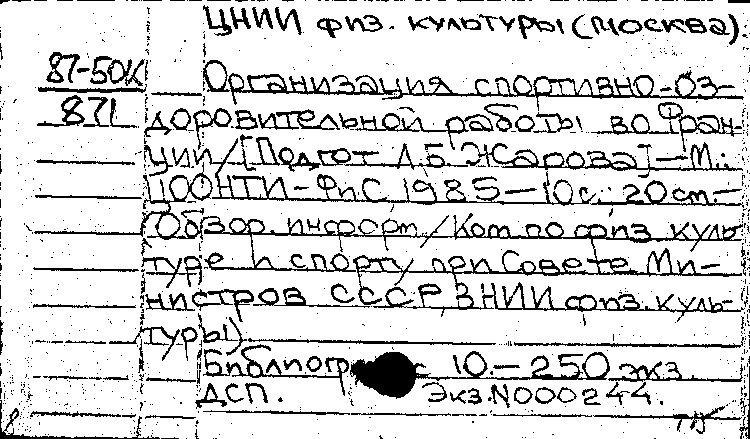 ЦНИИ физ. культуры (Москва).
87-50К
871
Организация спортивно-оз-
доровительной работы во Фран-
ции/[Подгот Л.Б. Жарова]—М.:
ЦООНТИ-ФиС, 1985—10с.; 20 см.—
(Обзор. информ./Ком. по физ. куль
туре и спорту при Совете Ми-
нистров СССР, ВНИИ физ. куль-
туры)
Библиогр с 10.—250 экз.
ДСП. Экз N000244.